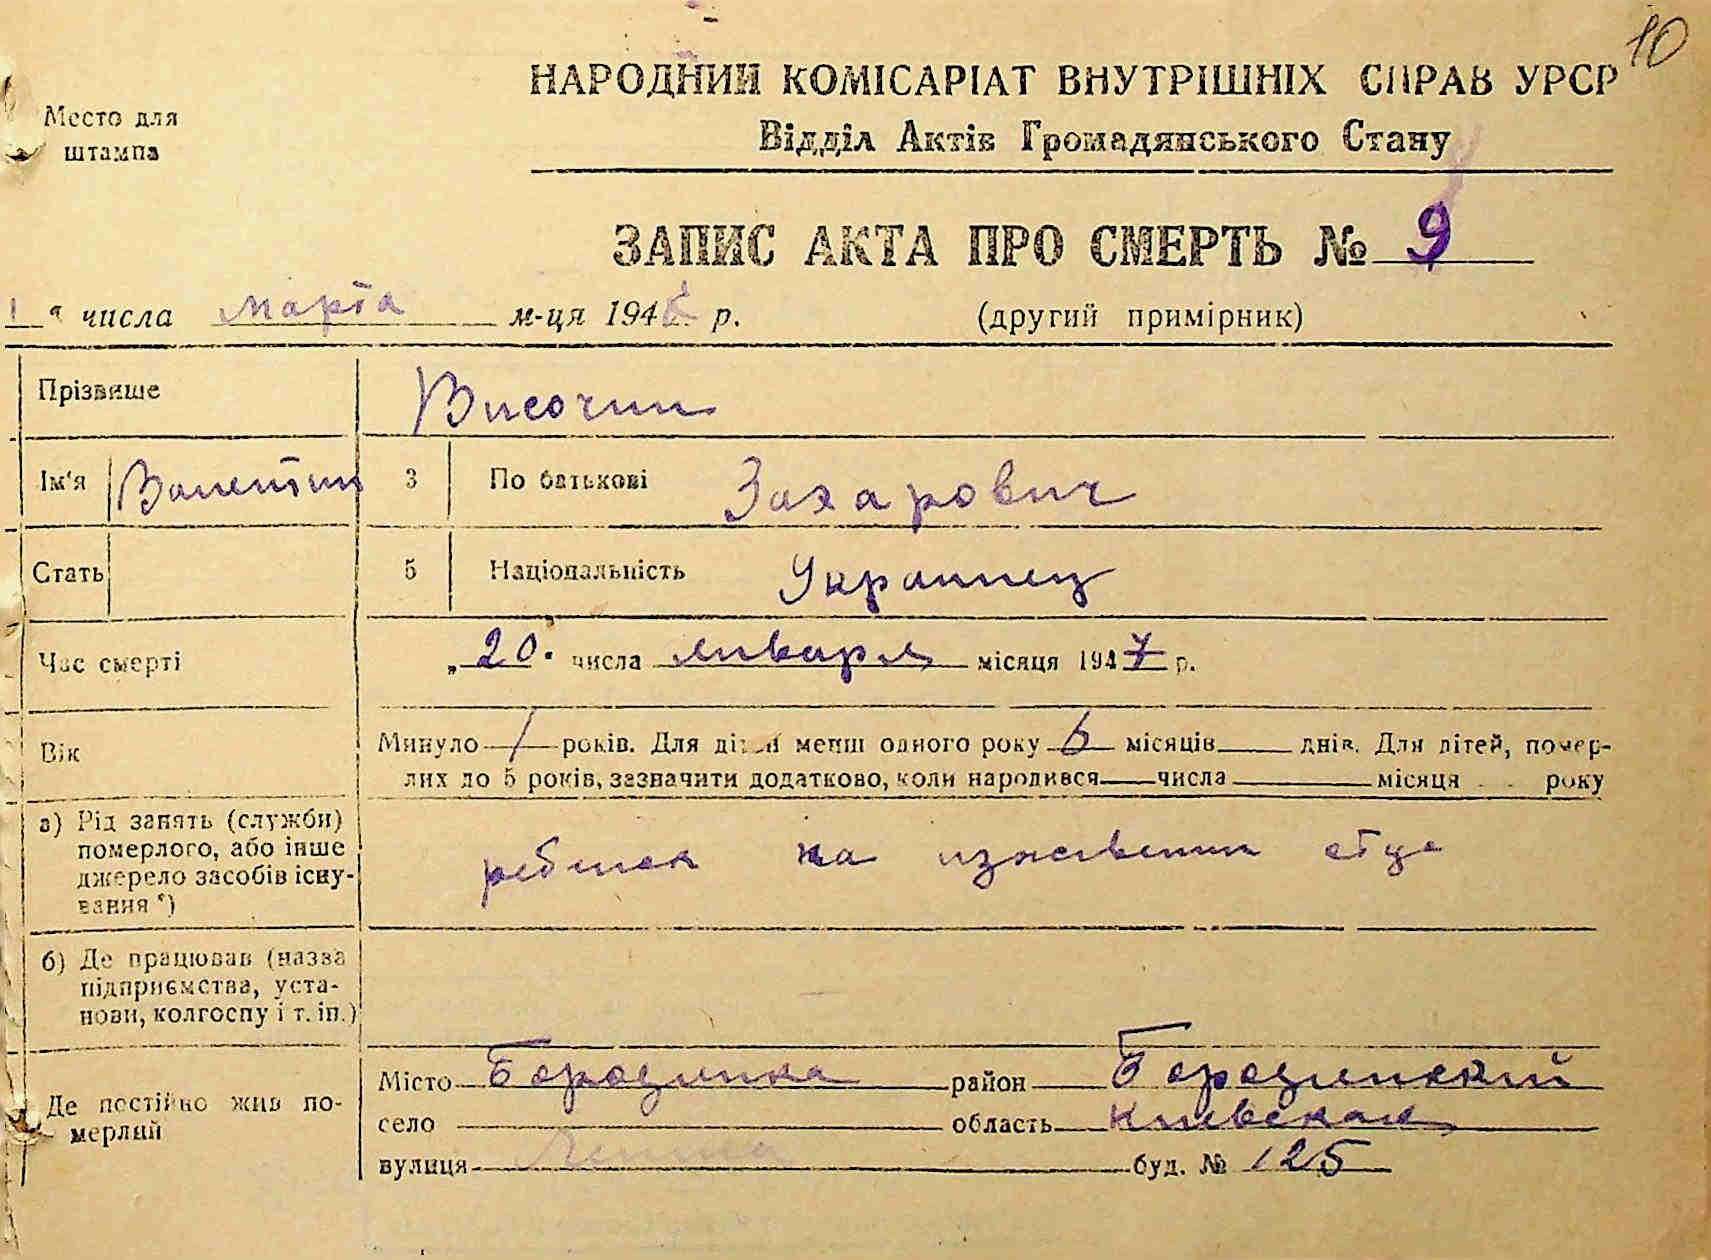 10
Место для
штампа
НАРОДНИЙ КОМІСАРІАТ ВНУТРІШНІХ СПРАВ УРСР
Відділ Актів Громадянського Стану
ЗАПИС АКТА ПРО СМЕРТЬ № 9
1 " числа марта м-ця 194 р.
(другий примірник)
Прізвище Височин
Ім'я Валентин 3 По батькові Захарович
Стать 5 Національність Украинец
Час смерті „ 20 " числа января місяця 1947 р.
Вік
Минуло 1 років. Для дітей менш одного року 6 місяців днів. Для дітей, помер-
лих до 5 років, зазначити додатково, коли народився числа місяця року
а) Рід занять (служби)
померлого, або інше
джерело засобів існу-
вання *)
ребенок на иждевении отца
б) Де працював (назва
підприємства, уста-
нови, колгоспу і т. ін.)
Де постійно жив по-
мерлий
Місто Бородянка район Бородянский
село область Киевская
вулиця Ленина буд. № 125